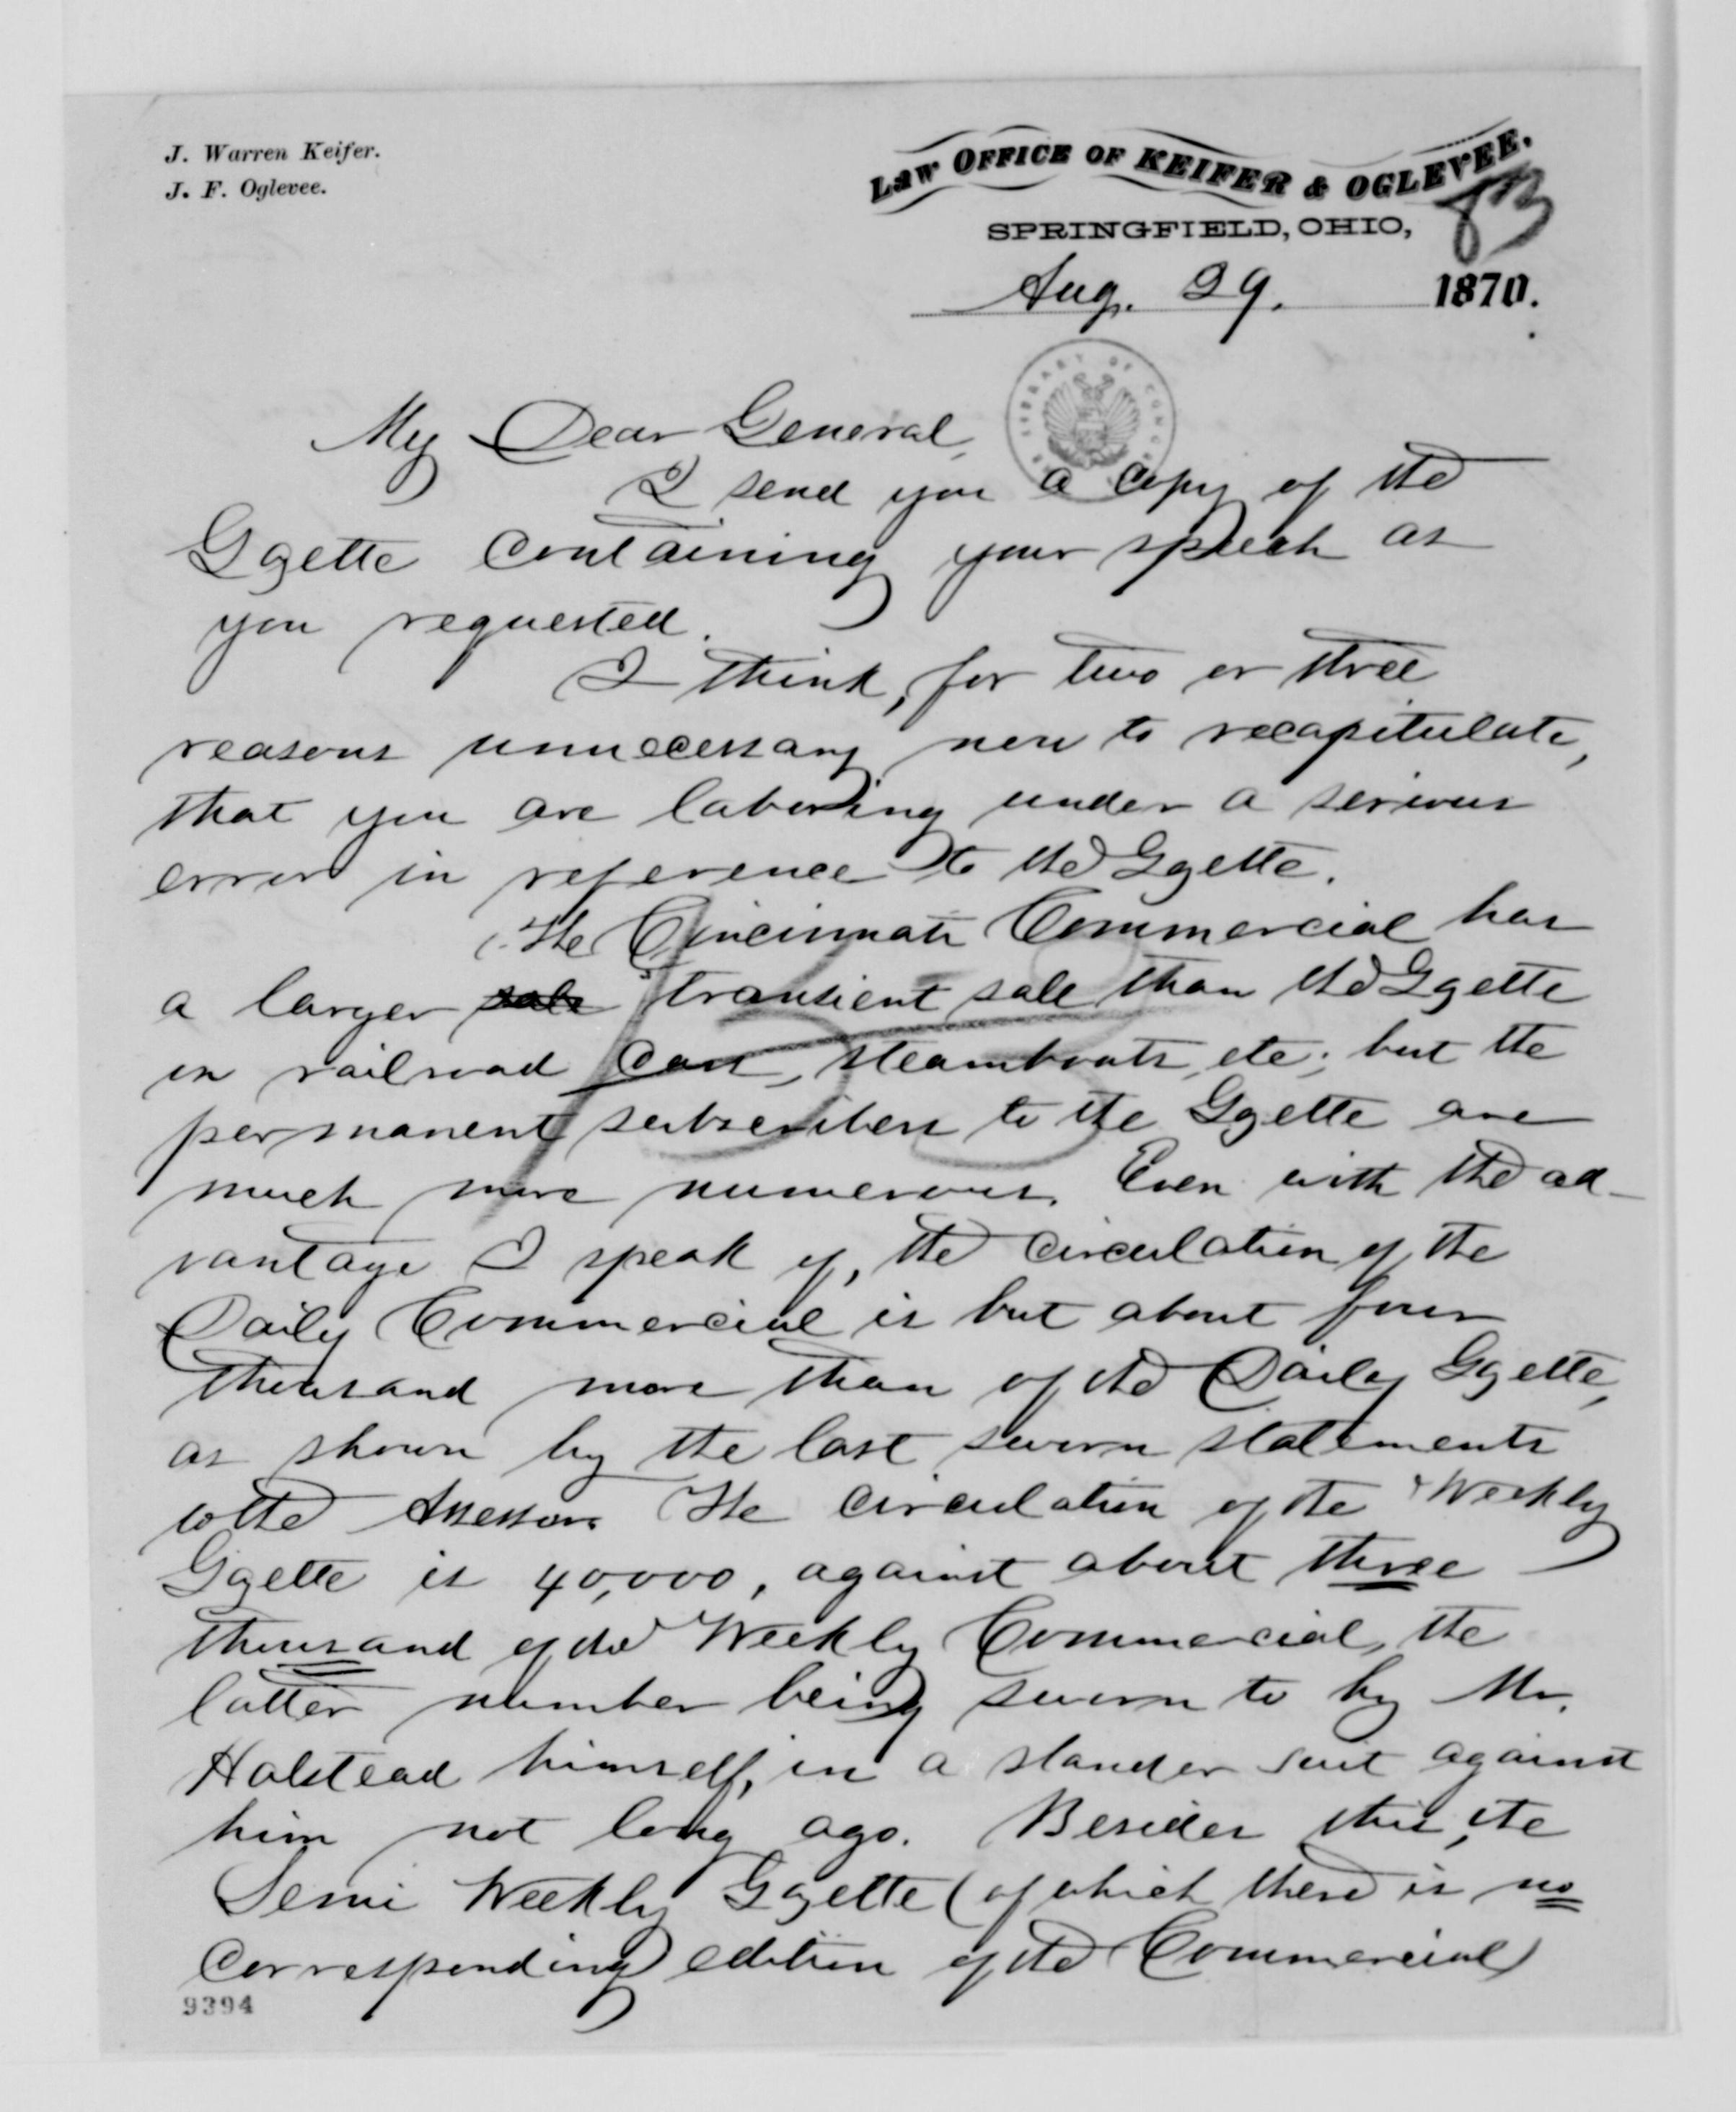 J. Warren Keifer.
J. F. Oglevee.
LAW OFFICE OF KEIFER & OGLEVEE.
SPRINGFIELD, OHIO,
83
Aug. 29. 1870.
LIBRARY OF CONGRESS
My Dear General,
I send you a copy of the
Gazette containing your speech as
you requested.
I think, for two or three
reasons unnecessary now to recapitulate,
that you are laboring under a serious
error in reference to the Gazette.
The Cincinnati Commercial has
a larger sale transient sale than the Gazette
in railroad cars, steamboats, etc; but the
permanent subscribers to the Gazette are
much more numerous. Even with the ad-
vantage I speak of, the circulation of the
Daily Commercial is but about four
thousand more than of the Daily Gazette,
as shown by the last sworn statements
to the Assessor. The circulation of the Weekly
Gazette is 40,000, against about three
thousand of the Weekly Commercial, the
latter number being sworn to by Mr.
Halstead himself, in a slander suit against
him not long ago. Besides this, the
Semi Weekly Gazette (of which there is no
corresponding edition of the Commercial)
9394